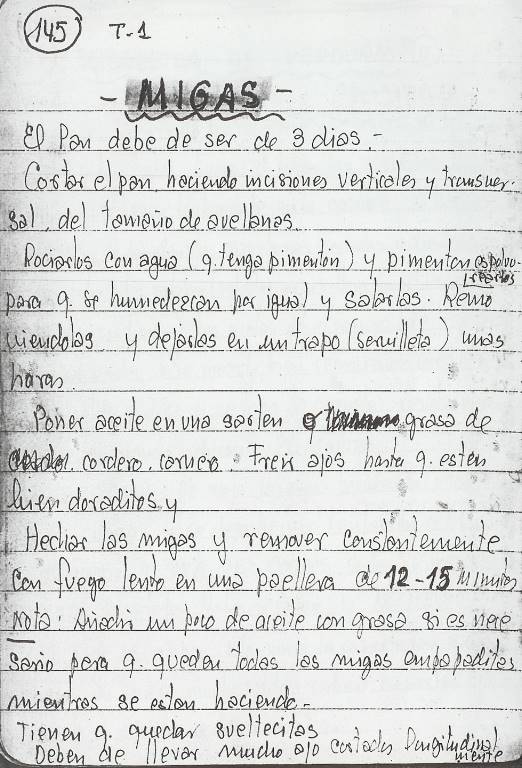 145 T-1
- MIGAS -
El Pan debe de ser de 3 dias.-
Cortar el pan, haciendo incisiones verticales y transver-
sal, del tamaño de avellanas.
Rociarlos con agua (q. tenga pimentón) y pimenton espolvo-
rearlos
para q. se humedezcan por igual y salarlas. Remo
viendolas y dejarlas en un trapo (servilleta) unas
horas.
Poner aceite en una sarten o grasa de
cordero, carnero. Freir ajos hasta q. esten
bien doraditos y
Hechar las migas y remover constantemente
con fuego lento en una paellera de 12-15 Minutos
Nota: Añadir un poco de aceite con grasa si es nece
sario para q. queden todas las migas empapaditas
mientras se estan haciendo.-
Tienen q. quedar sueltecitas
Deben de llevar mucho ajo cortados Longitudinal
mente